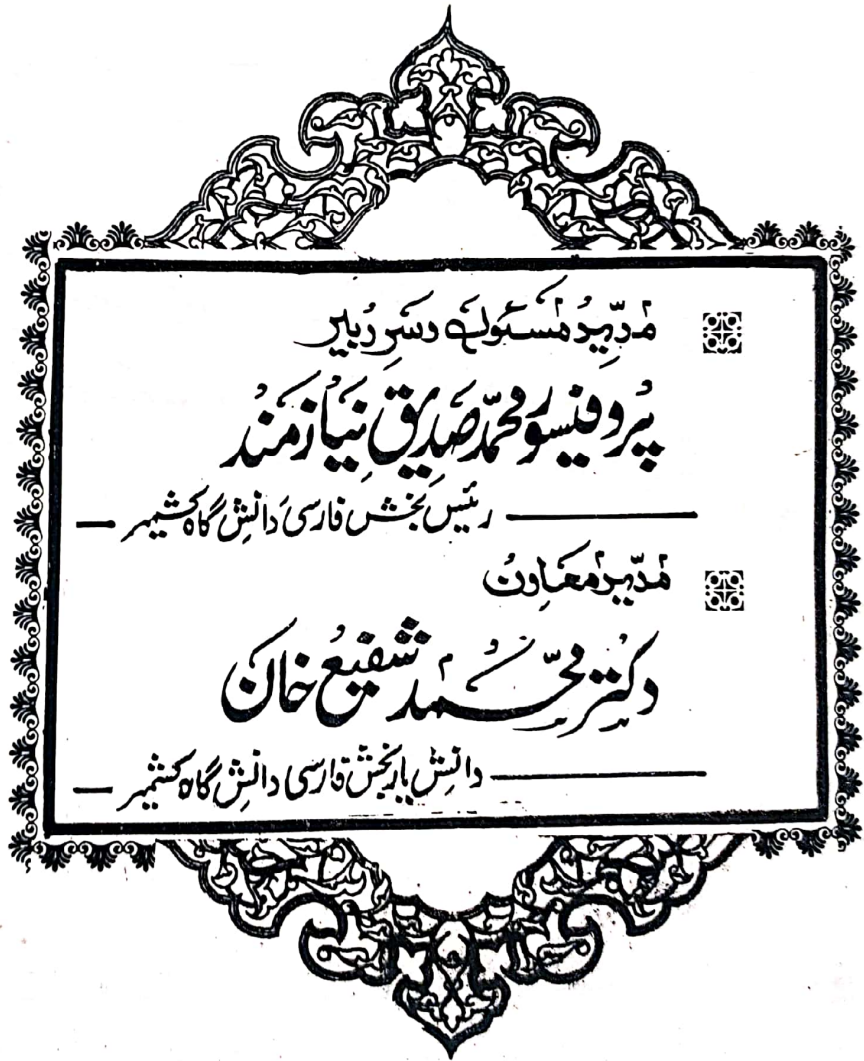 مدیرِ مسئول و سرِ دبیر
پروفیسور محمد صدیق نیازمند
رئیس بخش فارسی دانش گاہ کشمیر
مدیر معاون
دکتر محمد شفیع خان
دانش یار بخش فارسی دانش گاہ کشمیر